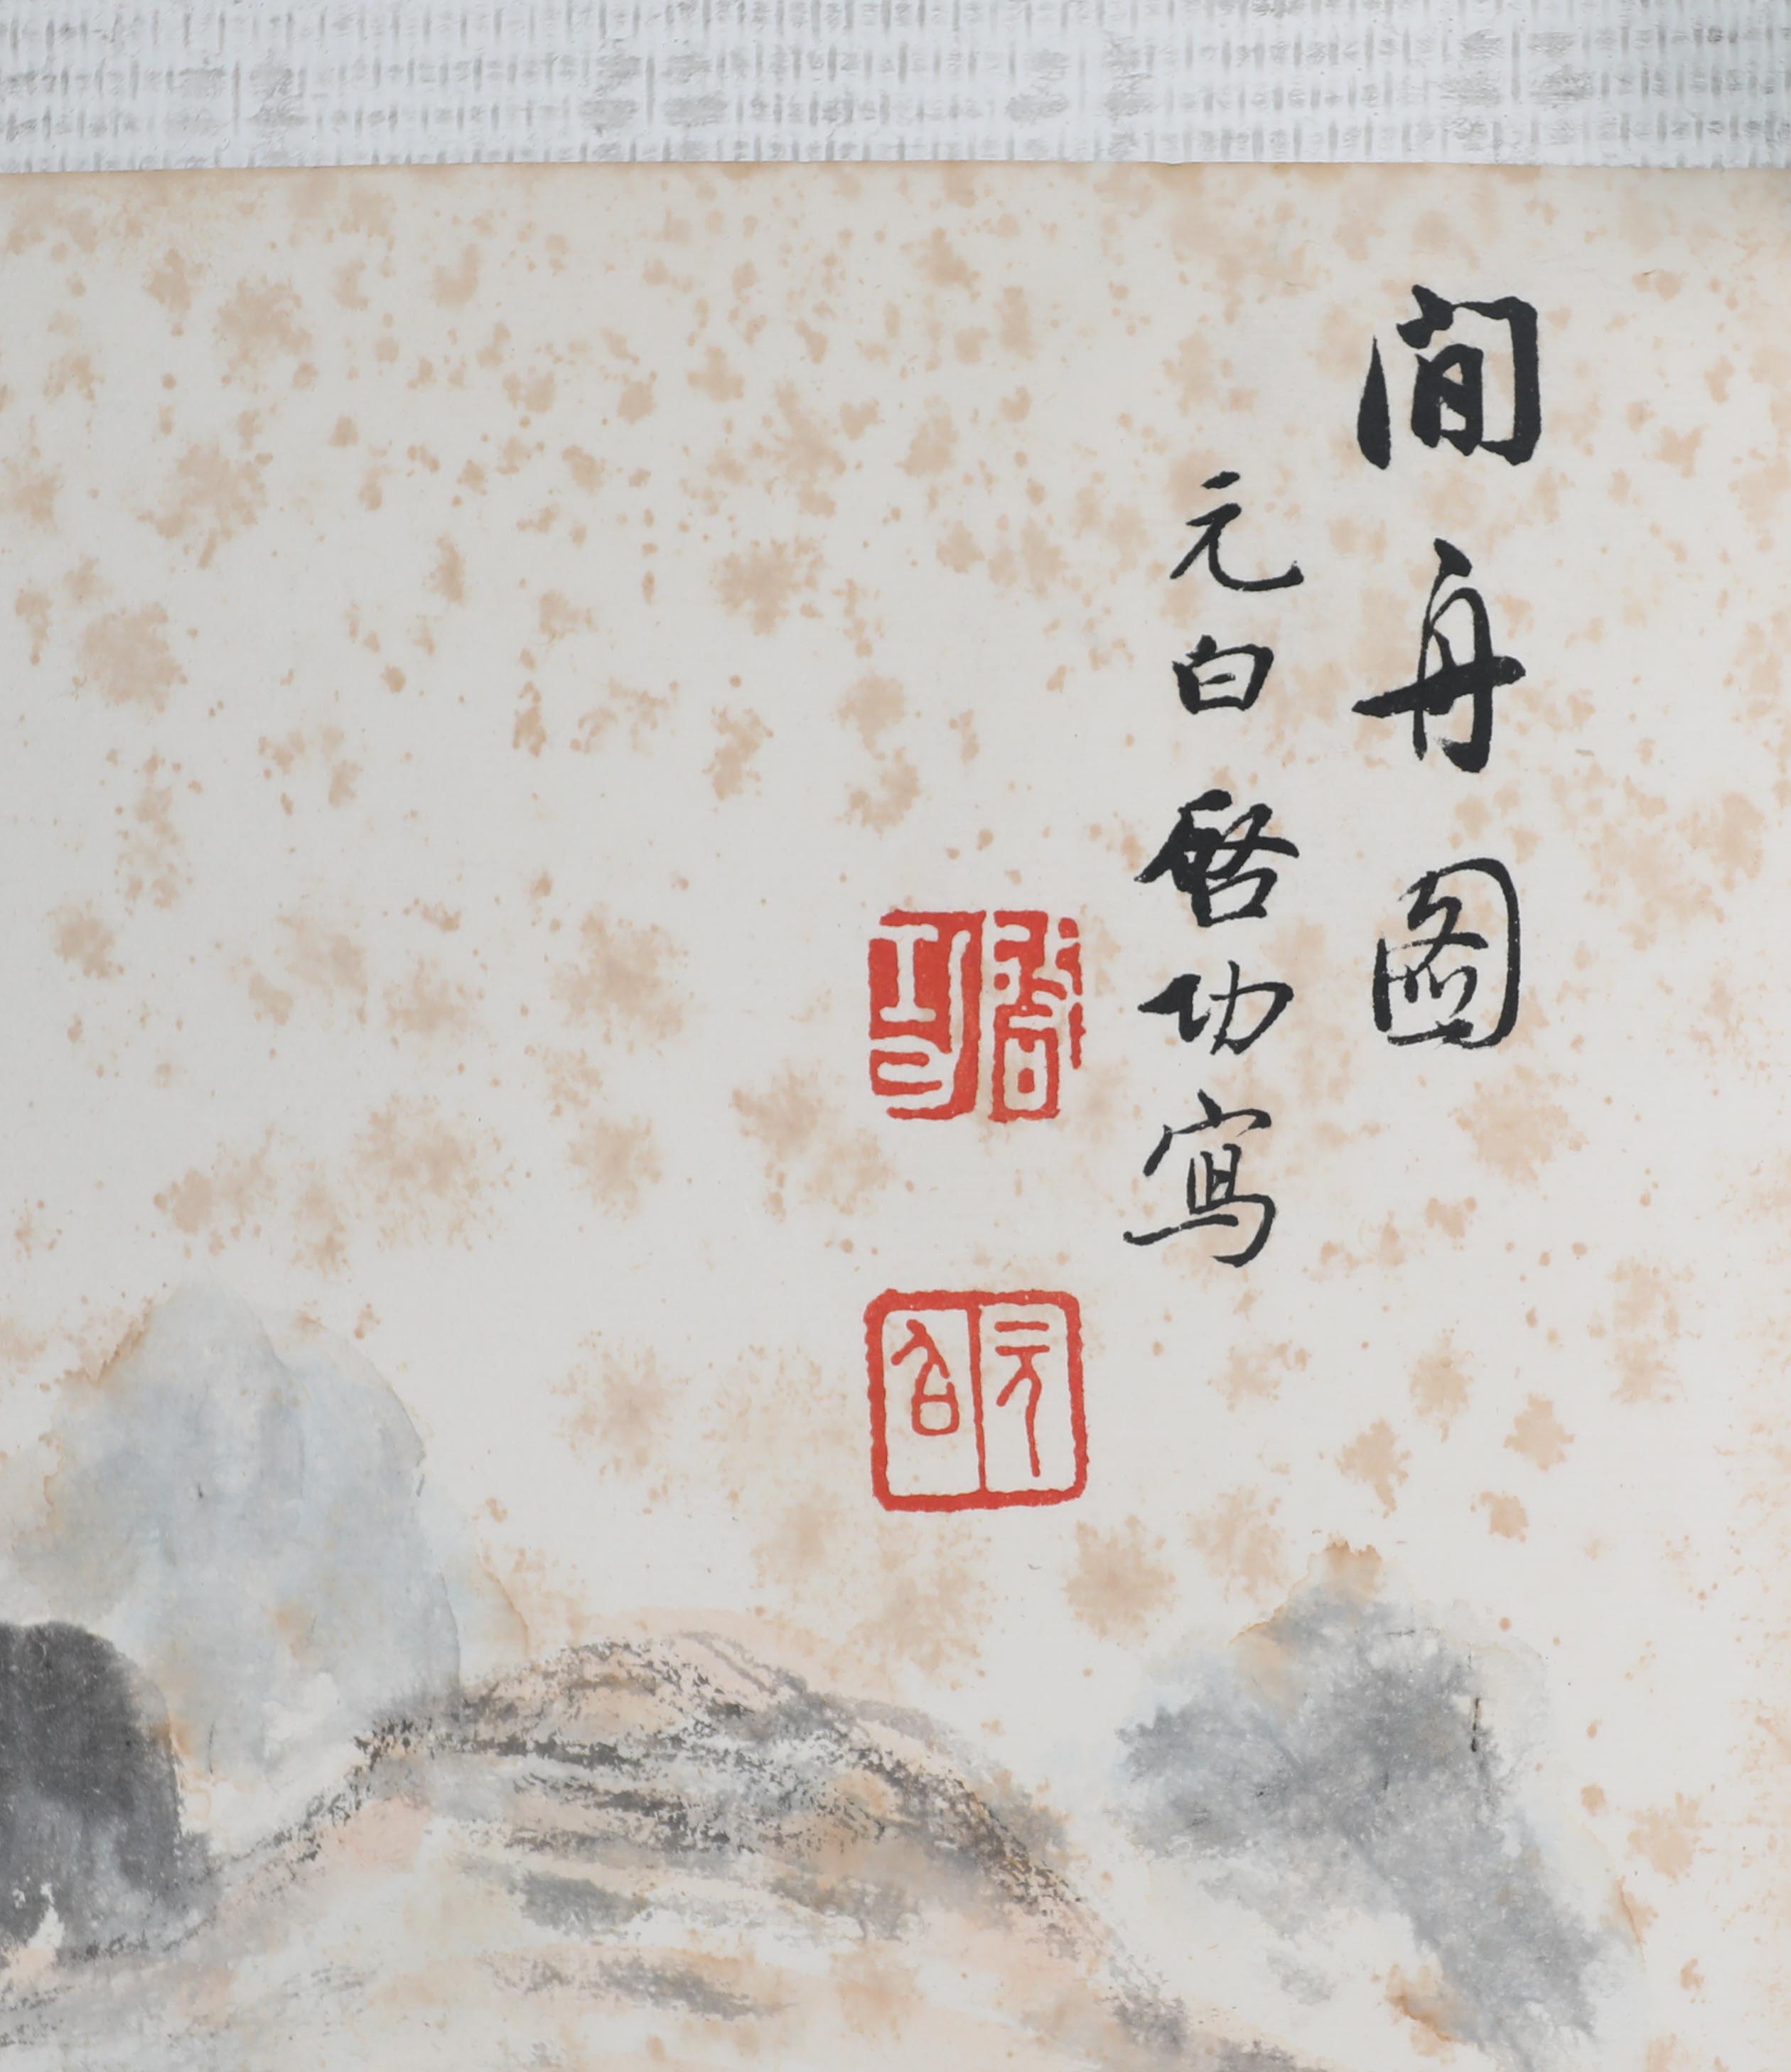 閒舟圖
元白啓功寫
啓功
元白